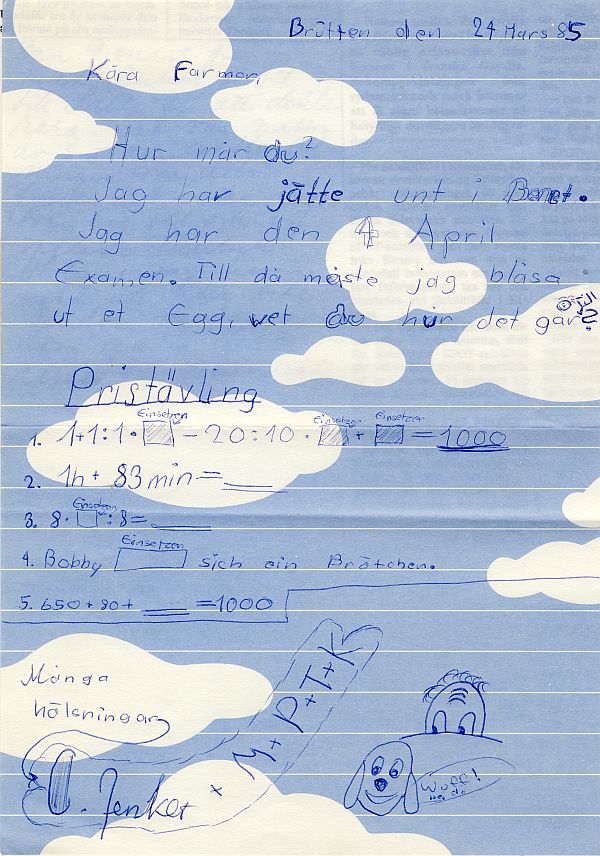 Brütten den 24 Mars 85
Kära Farmor,
Hur mår du?
Jag har jätte unt i Benet.
Jag har den 4 April
Examen. Till då måste jag blåsa
ut et Egg, wet du hur det går?
Pristävling
Einsetzen Einsetzen Einsetzen
1. 1+1:1· - 20:10· + = 1000
2. 1h + 83min = ___
Einsetzen
3. 8· :8= ___
Einsetzen
4. Bobby sich ein Brötchen.
5. 650+80+ ___ =1000
Många
hälsningar
O. Jenker + M+P+T+K
Wuff!